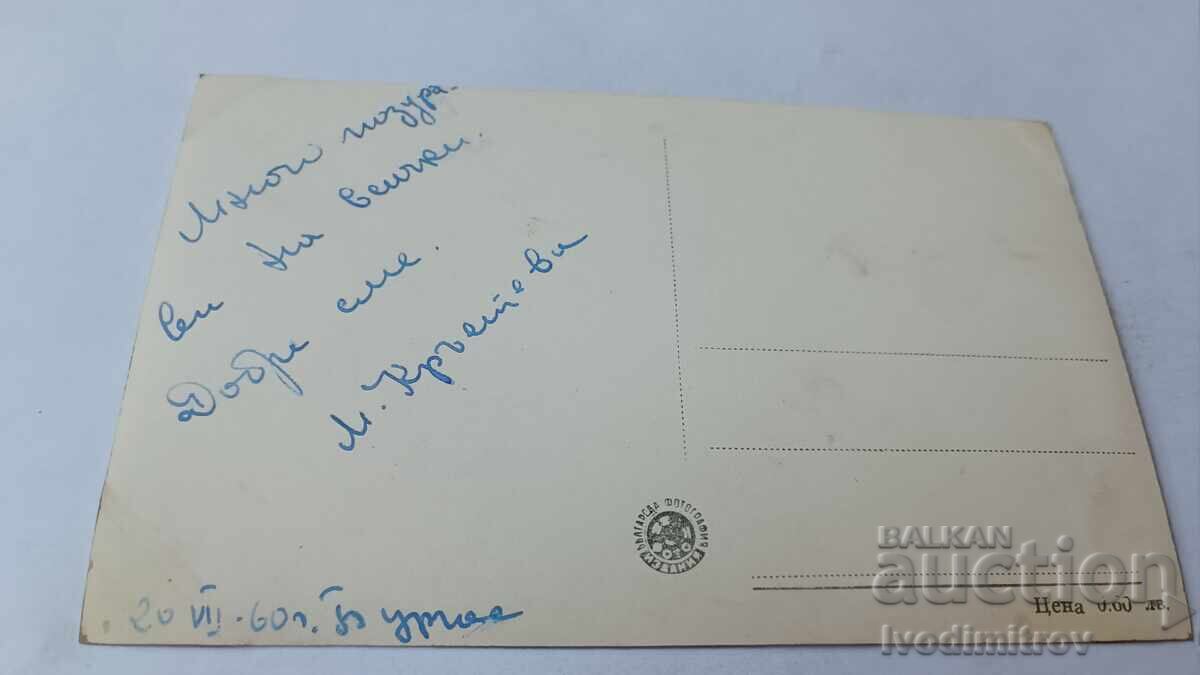 Много поздра-
ви на всички.
Добре сме.
М. Кръстева
20 VII. 60 г. Бургас
БЪЛГАРСКА ФОТОГРАФИЯ
ИЗДАНИЕ
Цена 0.60 лв.
BALKAN
auction
Ivodimitrov